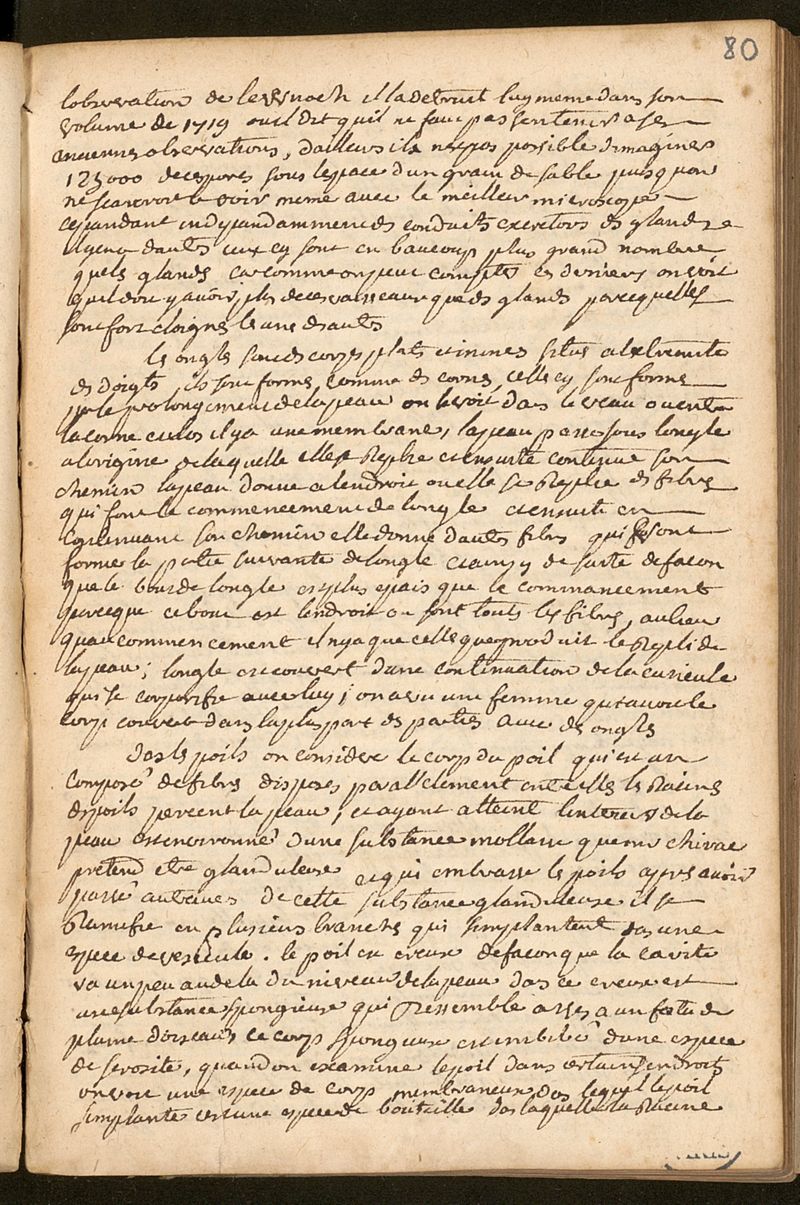 80
lobservation de lewnoek il la detruit luy meme dans son
volume de 1719 ou il dit quil ne faut pas sen tenir a ses
anciennes observations, dailleurs il nest pas possible dimaginer
125000 de ces pores sous lespace dun grain de sable puis quon
ne scauroit le voir meme avec le meilleur microscope
cependant independamment des conduits excretoirs des glandes
il y en a dautres ceux cy sont en baucoup plus grand nombre
que les glandes car comme on peut compter ces derniers on voit
quil doit y avoir plus de ces vaisseaux que des glandes parcequelles
sont fort eloignes les unes des autres
les ongles sont des corps plats et minces situes a lextremite
des doigts, ils sont formes, comme des cornes, celles cy sont formes
par le prolongement de la peau on le voit dans le veau ou entre
la corne et los il y a une membrane, la peau passe sous longle
a lorigine de laquelle elle se replie et ensuite continue son
chemin la peau donne a lendroit ou elle se replie des fibres
qui font le commencement de longle et ensuite en
continuant son chemin elle donne dautres fibres qui sont
forme la partie suivante de longle et ainsy de suite de facon
que le bout de longle est plus epais que le commancement
parceque ce bout est lendroit ou sont touts les fibres, au lieu
quau commencement il ny a que celles que produit le repli de
la peau; longle est couvert dune continuation de la cuticule
qui se corporifie avec luy; on a vu une femme qui avoit le
corp couvert dans la plus part des parties avec des ongles
Dans les poils on considere le corp du poil qui est un
composé de fibres disposes parallelement entre elles les racines
des poils percent la peau, et ayant atteint linterieur de la
peau est environné dune substance mollasse que mr chirac
pretend etre glanduleuse et qui embrasse les poils apres avoir
passé au travers de cette substance glanduleuse il se
ramifie en plusieurs branches qui simplantent dans une
espece de vesicule. le poil est creux de facon que la cavite
va un peu au dela du niveau de la peau dans ce creux est
une substance spongieuse qui ressemble asses a un fetu de
plume doiseau ce corp spongieux est imbibé dune espece
de serosite, quand on examine le poil dans certains endroits
on voit une espece de corp membraneux dans lequel le poil
simplante cest une espece de bouteille dans laquelle la racine